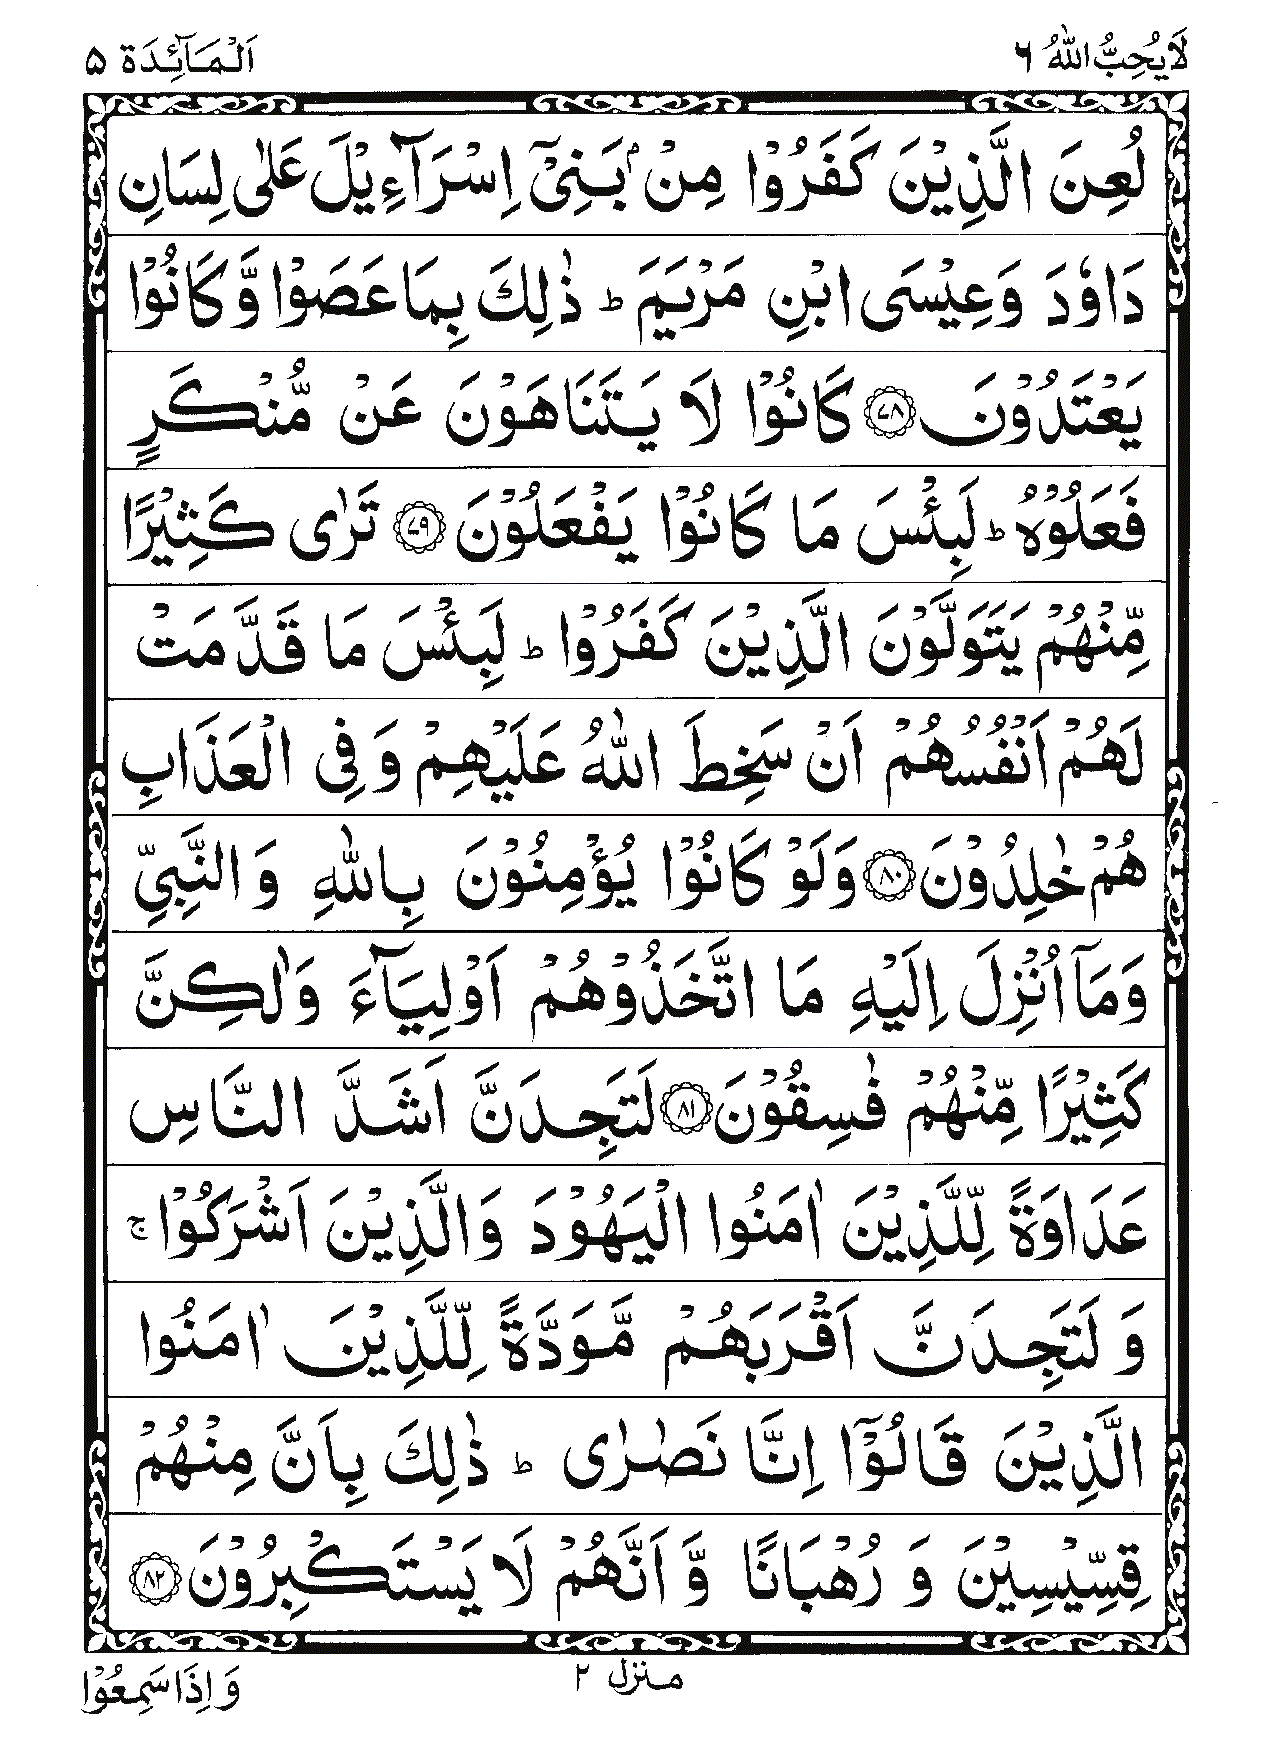 لَا يُحِبُّ اللّٰهُ ٦
اَلْمَآئِدَة ٥
لُعِنَ الَّذِيْنَ كَفَرُوْا مِنْۢ بَنِيْٓ اِسْرَآءِيْلَ عَلٰى لِسَانِ
دَاوٗدَ وَعِيْسَى ابْنِ مَرْيَمَ ؕ ذٰلِكَ بِمَا عَصَوْا وَّ كَانُوْا
يَعْتَدُوْنَ ۝٧٨ كَانُوْا لَا يَتَنَاهَوْنَ عَنْ مُّنْكَرٍ
فَعَلُوْهُ ؕ لَبِئْسَ مَا كَانُوْا يَفْعَلُوْنَ ۝٧٩ تَرٰى كَثِيْرًا
مِّنْهُمْ يَتَوَلَّوْنَ الَّذِيْنَ كَفَرُوْا ؕ لَبِئْسَ مَا قَدَّمَتْ
لَهُمْ اَنْفُسُهُمْ اَنْ سَخِطَ اللّٰهُ عَلَيْهِمْ وَ فِى الْعَذَابِ
هُمْ خٰلِدُوْنَ ۝٨٠ وَلَوْ كَانُوْا يُؤْمِنُوْنَ بِاللّٰهِ وَ النَّبِيِّ
وَمَآ اُنْزِلَ اِلَيْهِ مَا اتَّخَذُوْهُمْ اَوْلِيَآءَ وَلٰكِنَّ
كَثِيْرًا مِّنْهُمْ فٰسِقُوْنَ ۝٨١ لَتَجِدَنَّ اَشَدَّ النَّاسِ
عَدَاوَةً لِّلَّذِيْنَ اٰمَنُوا الْيَهُوْدَ وَالَّذِيْنَ اَشْرَكُوْا ۚ
وَ لَتَجِدَنَّ اَقْرَبَهُمْ مَّوَدَّةً لِّلَّذِيْنَ اٰمَنُوا
الَّذِيْنَ قَالُوْٓا اِنَّا نَصٰرٰى ؕ ذٰلِكَ بِاَنَّ مِنْهُمْ
قِسِّيْسِيْنَ وَ رُهْبَانًا وَّ اَنَّهُمْ لَا يَسْتَكْبِرُوْنَ ۝٨٢
منزل ٢
وَ اِذَا سَمِعُوْا